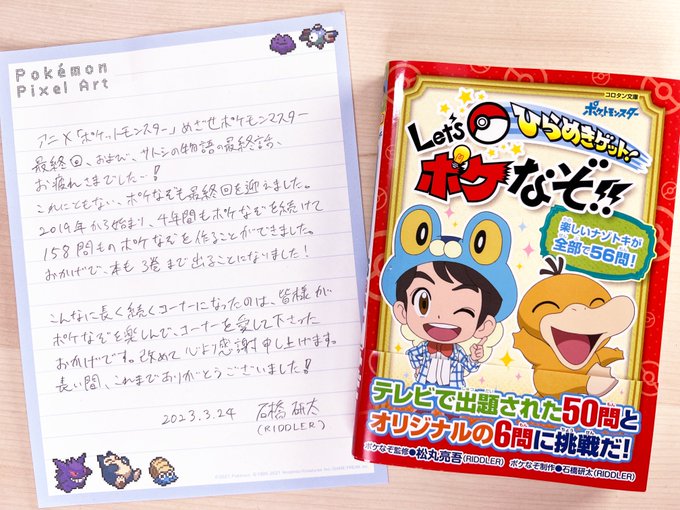 Pokémon
Pixel Art
アニメ「ポケットモンスター」めざせポケモンマスター
最終回、および、サトシの物語の最終話、
お疲れさまでした…!
これにともない、ポケなぞも最終回を迎えました。
2019年から始まり、4年間もポケなぞを続けて
158問ものポケなぞを作ることができました。
おかげで、本も3巻まで出ることになりました!
こんなに長く続くコーナーになったのは、皆様が
ポケなぞを楽しんで、コーナーを愛して下さった
おかげです。改めて心より感謝申し上げます。
長い間、これまでありがとうございました!
2023.3.24 石橋研太
(RIDDLER)
コロタン文庫
ポケットモンスター
Let's ひらめきゲット!
ポケなぞ!!
楽しいナゾトキが
全部で56問!
テレビで出題された50問と
オリジナルの6問に挑戦だ!
ポケなぞ監修●松丸亮吾(RIDDLER) ポケなぞ制作●石橋研太(RIDDLER)